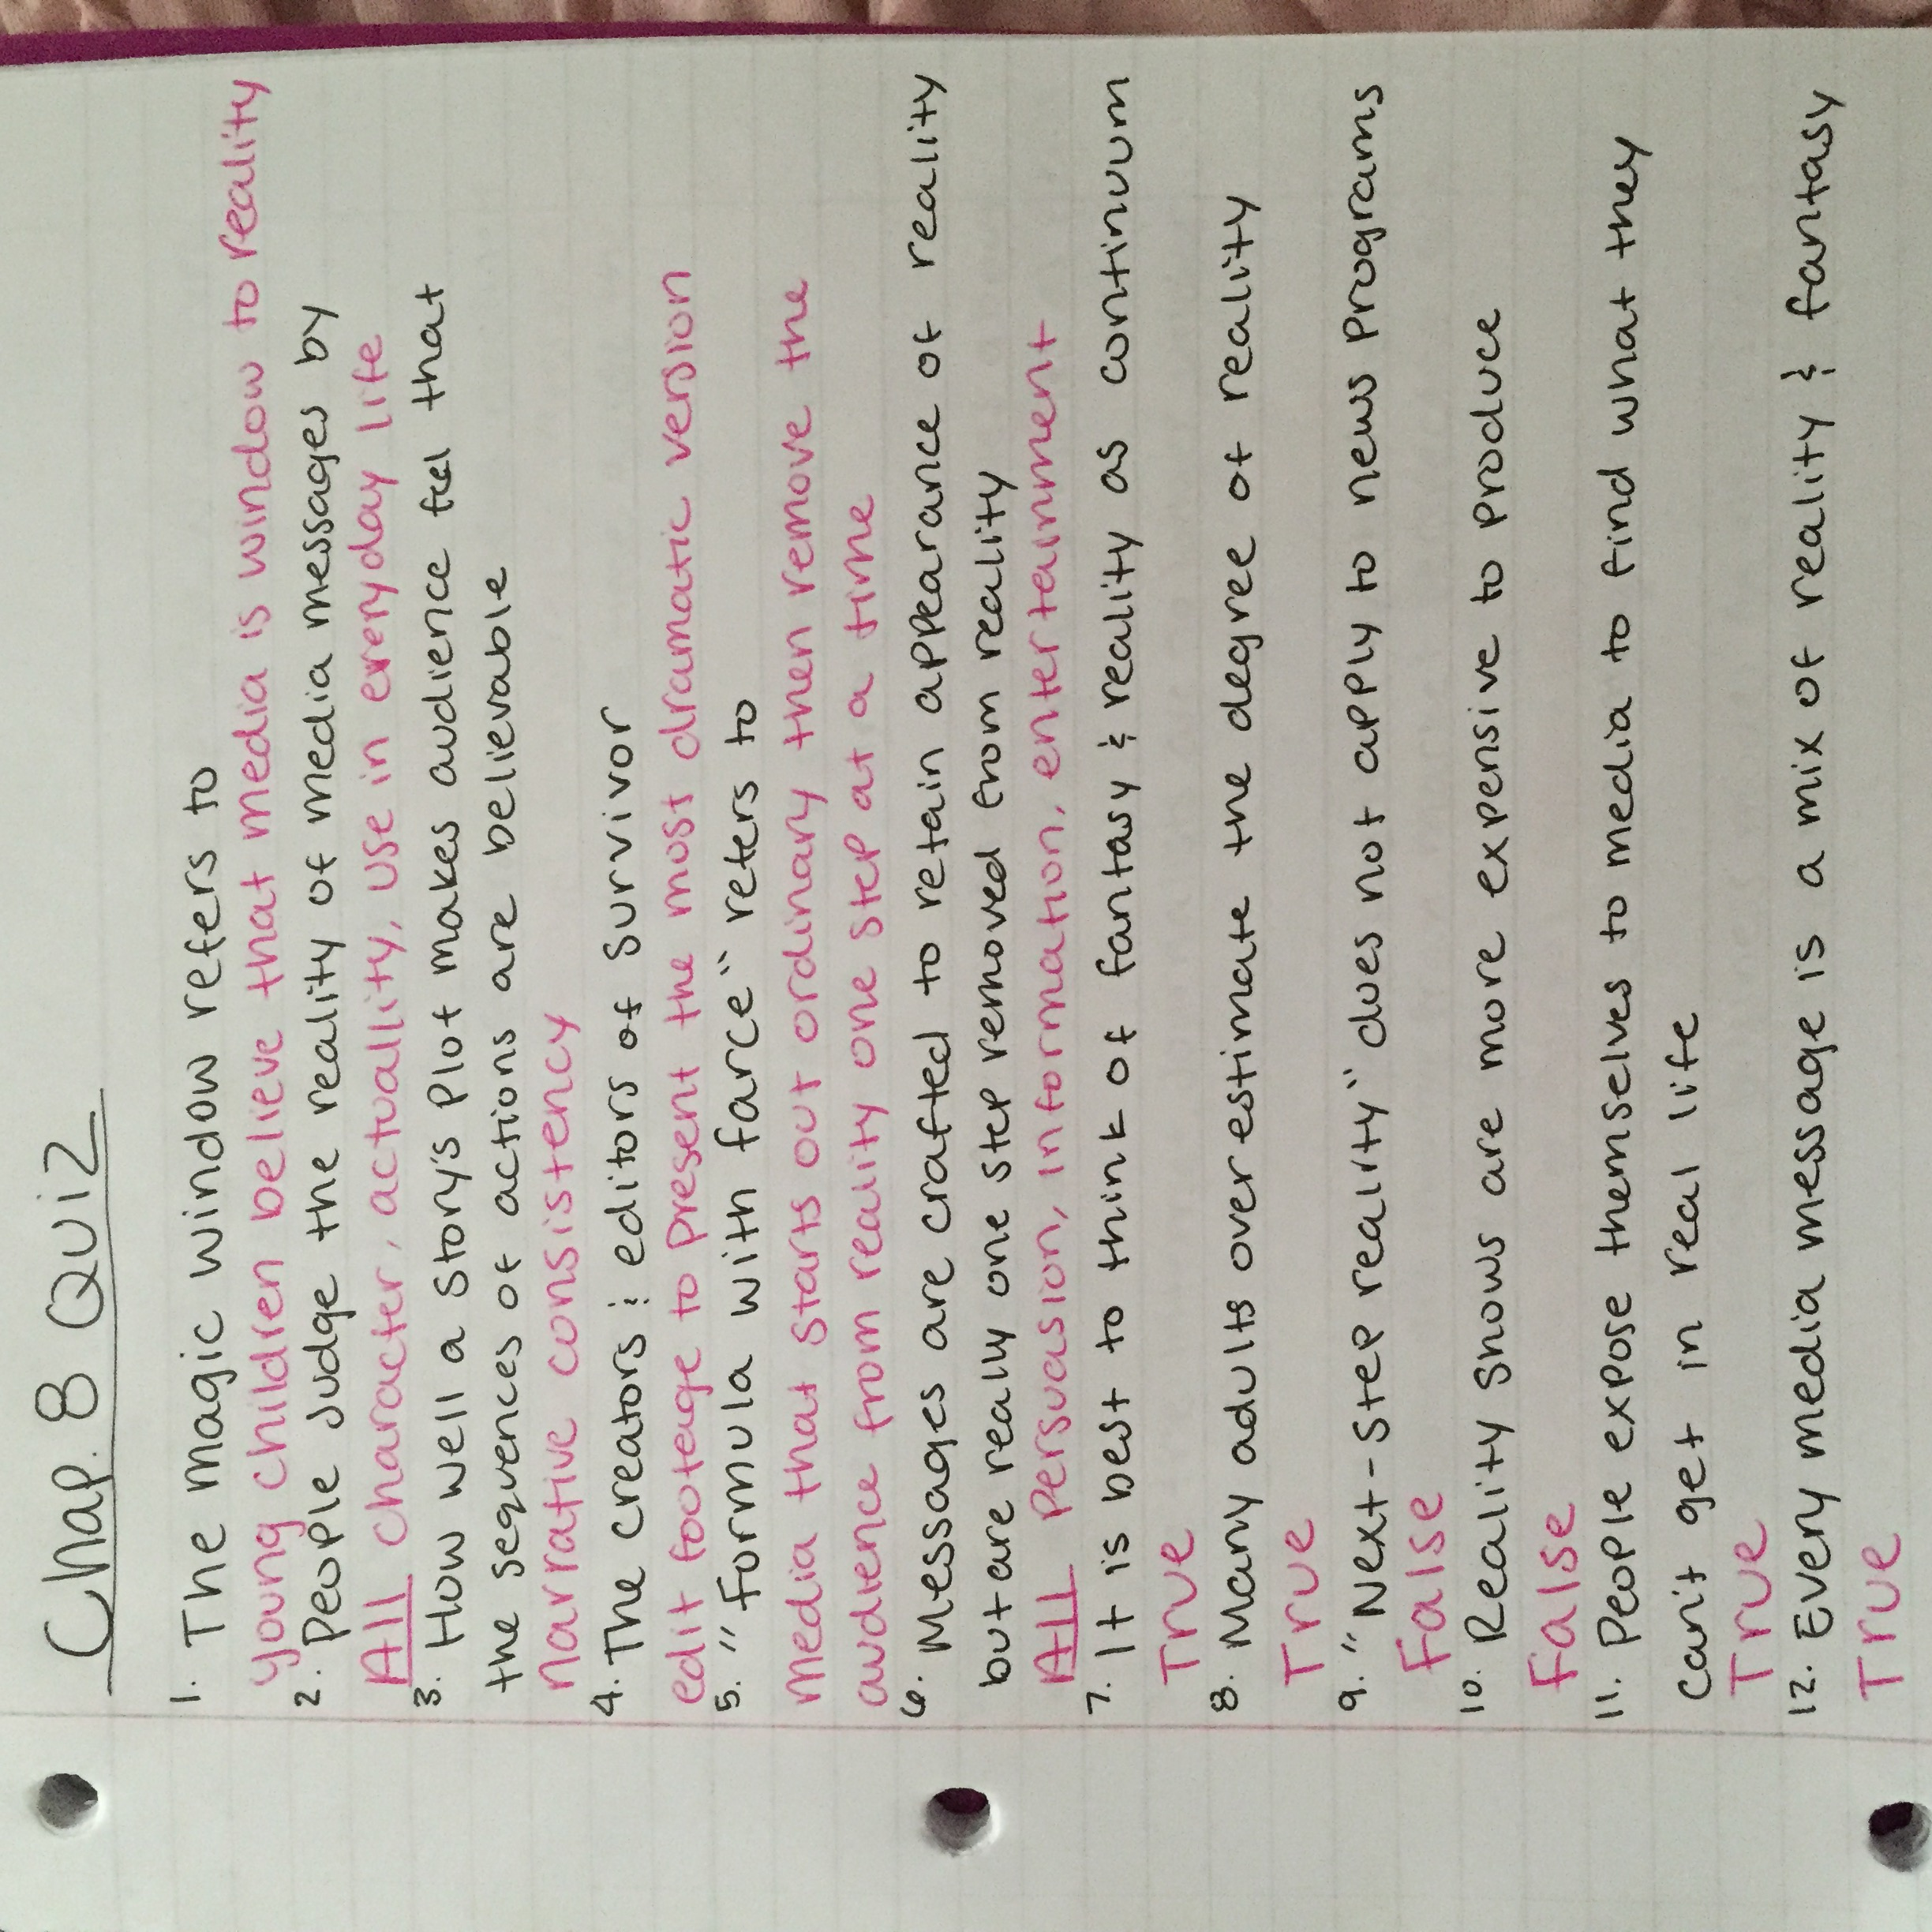 Chap. 8 Quiz
1. The magic window refers to
young children believe that media is window to reality
2. People judge the reality of media messages by
All character, actuallity, use in everyday life
3. How well a story's plot makes audience feel that
the sequences of actions are believable
narrative consistency
4. The creators & editors of survivor
edit footage to present the most dramatic version
5. "formula with farce" refers to
media that starts out ordinary then remove the
audience from reality one step at a time
6. Messages are crafted to retain appearance of reality
but are really one step removed from reality
All persuasion, information, entertainment
7. It is best to think of fantasy & reality as continuum
True
8. Many adults overestimate the degree of reality
True
9. "Next-step reality" does not apply to news programs
False
10. Reality shows are more expensive to produce
False
11. People expose themselves to media to find what they
can't get in real life
True
12. Every media message is a mix of reality & fantasy
True